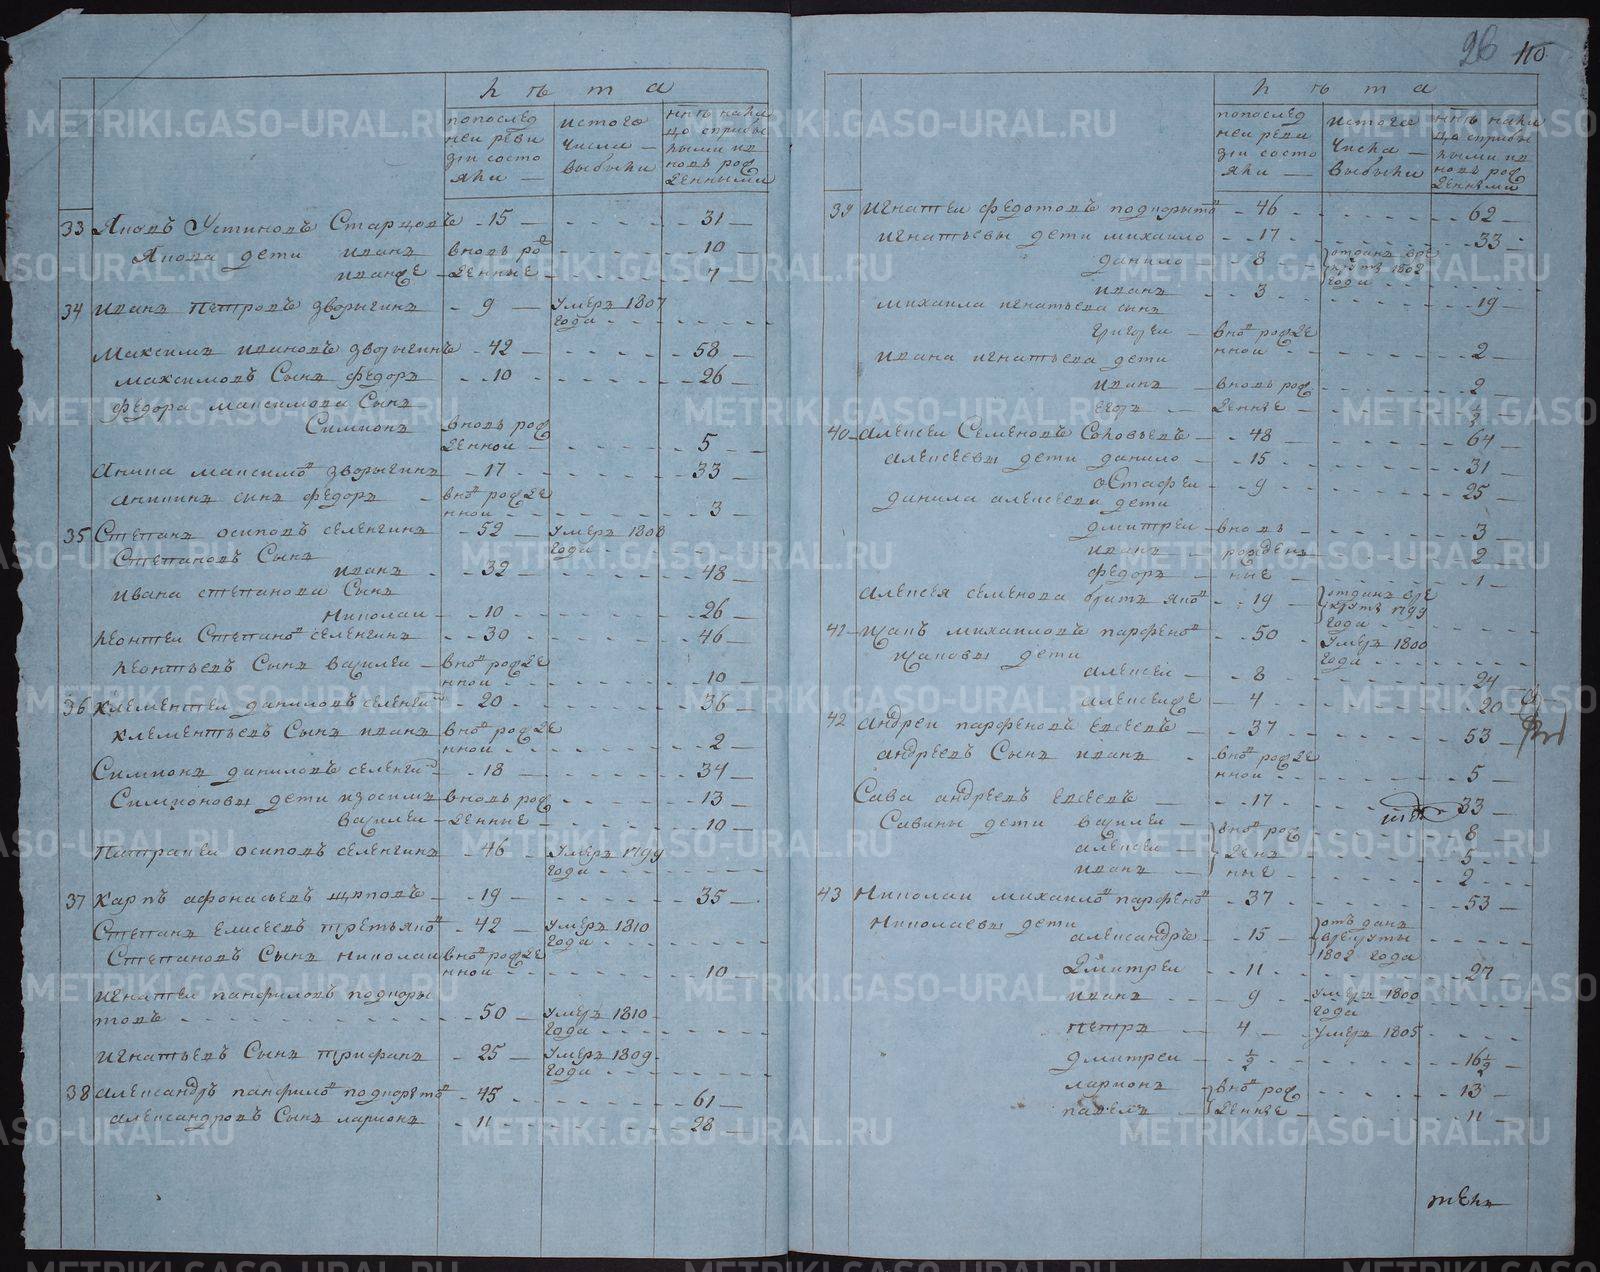 лѣта
попослед
ней реви
зіи состо
яли
истого
числа
выбыли
нынѣ нали
цо сприбы
лыми и в
новь рож
денными
33 Яковъ Устиновъ Старцовъ - 15 - 31
Якова дети иванъ вновь ро 10
иван же денные 7
34 иванъ Петровъ зворыгинъ - 9 умеръ 1807
года
Максимъ ивановъ зворыгинъ 42 58
максимовъ Сынъ федоръ 10 26
федора максимова Сынъ
Симионъ вновь рож
денной 5
Аника максимов зворыгинъ 17 33
аникинъ сынъ федоръ внов рожде
нной 3
35 Степанъ осиповъ селенгинъ 52 умеръ 1808
года
Степановъ Сынъ
иванъ 32 48
ивана степанова Сынъ
Николаи 10 26
леонтеи Степанов селенгинъ 30 46
леонтьевъ Сынъ василеи внов рожде
нной 10
36 клементеи даниловъ селенги 20 36
клементьевъ Сынъ иванъ внов рожде
нной 2
Симионъ даниловъ селенги 18 34
Симионовы дети изосимъ вновь рож 13
василеи денние 10
Патракеи осиповъ селенгинъ 46 умеръ 1799
года
37 карпъ афонасьевъ щаповъ 19 35
Степанъ Елисеевъ третьяков 42 умеръ 1810
года
Степановъ Сынъ николаи внов рожде
нной 10
игнатеи панфиловъ подкоры
товъ 50 умеръ 1810
года
игнатьевъ Сынъ трифанъ 25 умеръ 1809
года
38 александръ панфилов подкорыто 45 61
александровъ Сынъ ларионъ 11 28
26 110
лѣта
попослед
ней реви
зіи состо
яли
истого
числа
выбыли
нынѣ нали
цо сприбы
лыми и в
новь рож
денными
39 игнатеи федотовъ подкорыто 46 62
игнатьевы дети михаило 17 33
данило 8 отданъ вре
круты 1802
года
иванъ 3 19
михаила игнатьева сынъ
григореи внов рожде
нной 2
ивана игнатьева дети
иванъ вновь рож 2
егоръ денные ½
40 алексеи Семеновъ Соловьевъ 48 64
алексеевы дети данило 15 31
остафеи 9 25
данила алексеева дети
дмитреи вновь 3
иванъ рожден 2
федоръ ние 1
алексея семенова братъ яков 19 отданъ вре
круты 1799
года
41 щапъ михаиловъ парфено 50 умеръ 1800
года
щаповы дети
алексеи 8 24
алексеиже 4 20
42 андреи парфеновъ Евсеевъ 37 53
андреевъ Сынъ иванъ внов рожде
нной 5
Сава андреевъ Евсеевъ 17 33
Савины дети василеи внов рож 8
алексеи ден 5
иванъ ние 2
43 Николаи михаило парфено 37 53
Николаевы дети
александръ 15 отъданъ
врекруты
1802 года
дмитреи 11 27
иванъ 9 умеръ 1800
года
петръ 4 умеръ 1805
дмитреи ½ 16½
ларионъ внов рож 13
павелъ денние 11